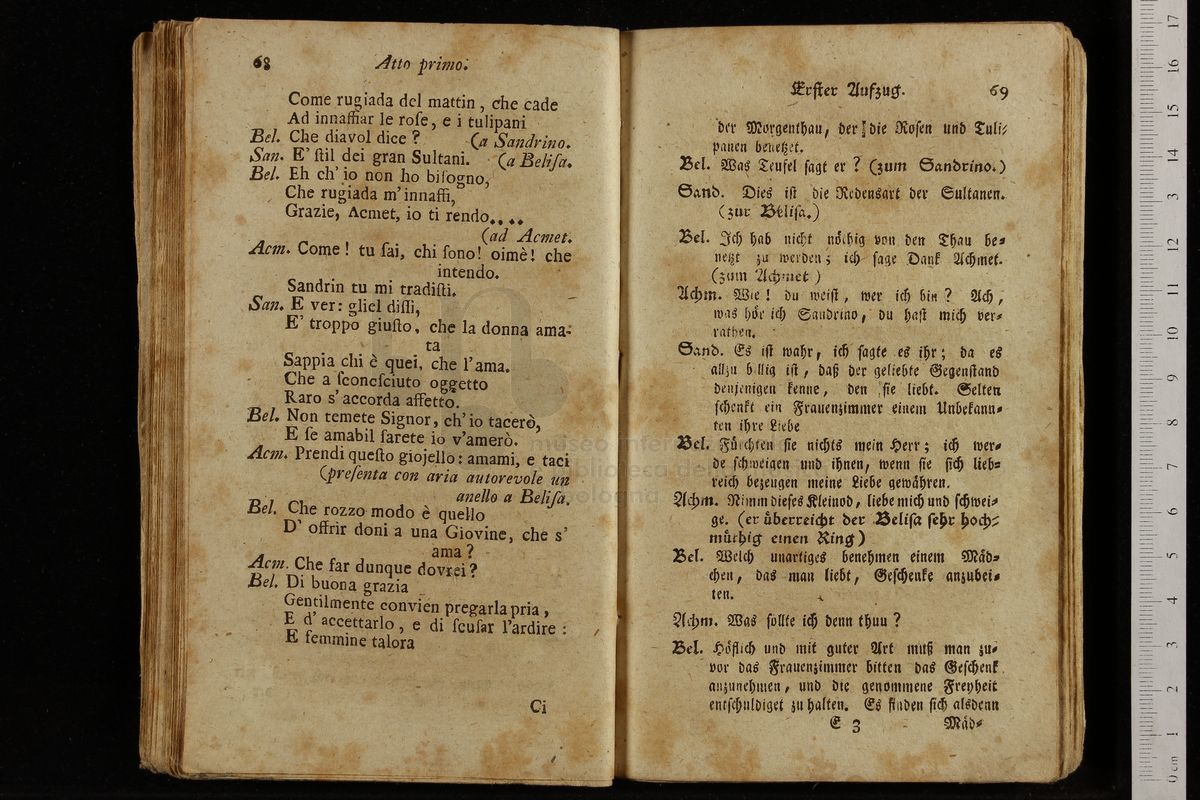 68 Atto primo.
Come rugiada del mattin, che cade
Ad innaffiar le roſe, e i tulipani
Bel. Che diavol dice? (a Sandrino.
San. E' ſtil dei gran Sultani. (a Beliſa.
Bel. Eh ch' io non ho biſogno,
Che rugiada m'innaffi,
Grazie, Acmet, io ti rendo....
(ad Acmet.
Acm. Come! tu ſai, chi ſono! oimè! che
intendo.
Sandrin tu mi tradiſti.
San. E ver: gliel diſſi,
E' troppo giuſto, che la donna ama-
ta
Sappia chi è quei, che l'ama.
Che a ſconoſciuto oggetto
Raro s' accorda affetto.
Bel. Non temete Signor, ch' io tacerò,
E ſe amabil ſarete io v'amerò.
Acm. Prendi queſto giojello: amami, e taci
(preſenta con aria autorevole un
anello a Beliſa.
Bel. Che rozzo modo è quello
D' offrir doni a una Giovine, che s'
ama?
Acm. Che far dunque dovrei?
Bel. Di buona grazia
Gentilmente convien pregarla pria,
E d' accettarlo, e di ſcuſar l'ardire:
E femmine talora
Ci
Erſter Aufzug. 69
der Morgenthau, der die Roſen und Tuli-
panen benetzet.
Bel. Was Teufel ſagt er? (zum Sandrino.)
Sand. Dies iſt die Redensart der Sultanen.
(zur Beliſa.)
Bel. Ich hab nicht nöthig von den Thau be-
netzt zu werden; ich ſage Dank Achmet.
(zum Achmet)
Achm. Wie! du weiſt, wer ich bin? Ach,
was hör ich Sandrino, du haſt mich ver-
rathen.
Sand. Es iſt wahr, ich ſagte es ihr; da es
allzu billig iſt, daß der geliebte Gegenſtand
denjenigen kenne, den ſie liebt. Selten
ſchenkt ein Frauenzimmer einem Unbekann-
ten ihre Liebe
Bel. Fürchten ſie nichts mein Herr; ich wer-
de ſchweigen und ihnen, wenn ſie ſich lieb-
reich bezeugen meine Liebe gewähren.
Achm. Nimm dieſes Kleinod, liebe mich und ſchwei-
ge. (er überreicht der Beliſa ſehr hoch-
müthig einen Ring)
Bel. Welch unartiges benehmen einem Mäd-
chen, das man liebt, Geſchenke anzubei-
ten.
Achm. Was ſollte ich denn thuu?
Bel. Höflich und mit guter Art muß man zu-
vor das Frauenzimmer bitten das Geſchenk
anzunehmen, und die genommene Freyheit
entſchuldiget zu halten. Es finden ſich alsdenn
E 3 Mäd-